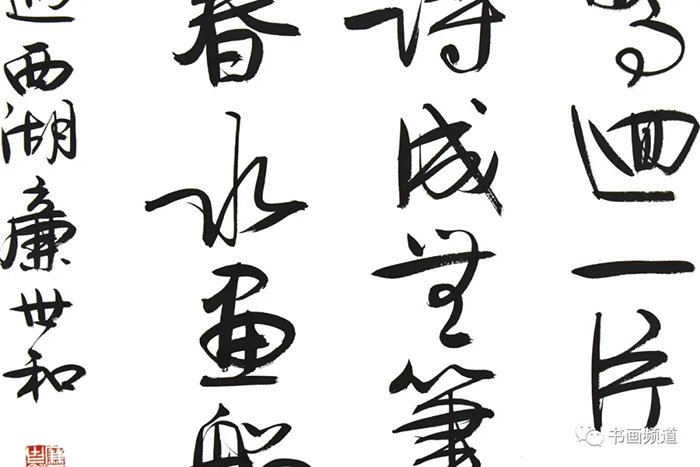 迴一片
詩成無筆
春水畫船
西湖廉世和
书画频道